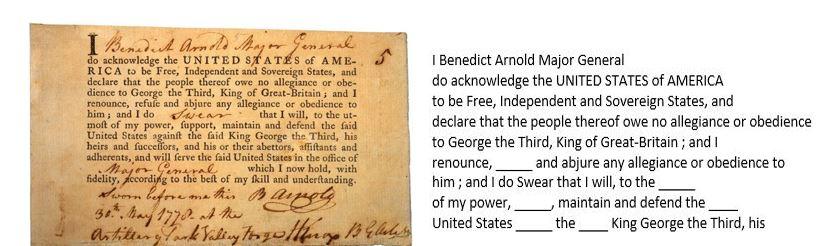 I Benedict Arnold Major General 5
do acknowledge the UNITED STATES of AME-
RICA to be Free, Independent and Sovereign States, and
declare that the people thereof owe no allegiance or obe-
dience to George the Third, King of Great-Britain ; and I
renounce, refuſe and abjure any allegiance or obedience to
him ; and I do Swear that I will, to the ut-
moſt of my power, ſupport, maintain and defend the ſaid
United States againſt the ſaid King George the Third, his
heirs and ſucceſſors, and his or their abettors, aſſiſtants and
adherents, and will ſerve the ſaid United States in the office of
Major General which I now hold, with
fidelity, according to the beſt of my ſkill and underſtanding.
Sworn before me this B Arnold
30th May 1778 at the
Artillery Park Valley Forge HKnox B G
I Benedict Arnold Major General
do acknowledge the UNITED STATES of AMERICA
to be Free, Independent and Sovereign States, and
declare that the people thereof owe no allegiance or obedience
to George the Third, King of Great-Britain ; and I
renounce, _____ and abjure any allegiance or obedience to
him ; and I do Swear that I will, to the _____
of my power, _____, maintain and defend the ____
United States _____ the ____ King George the Third, his